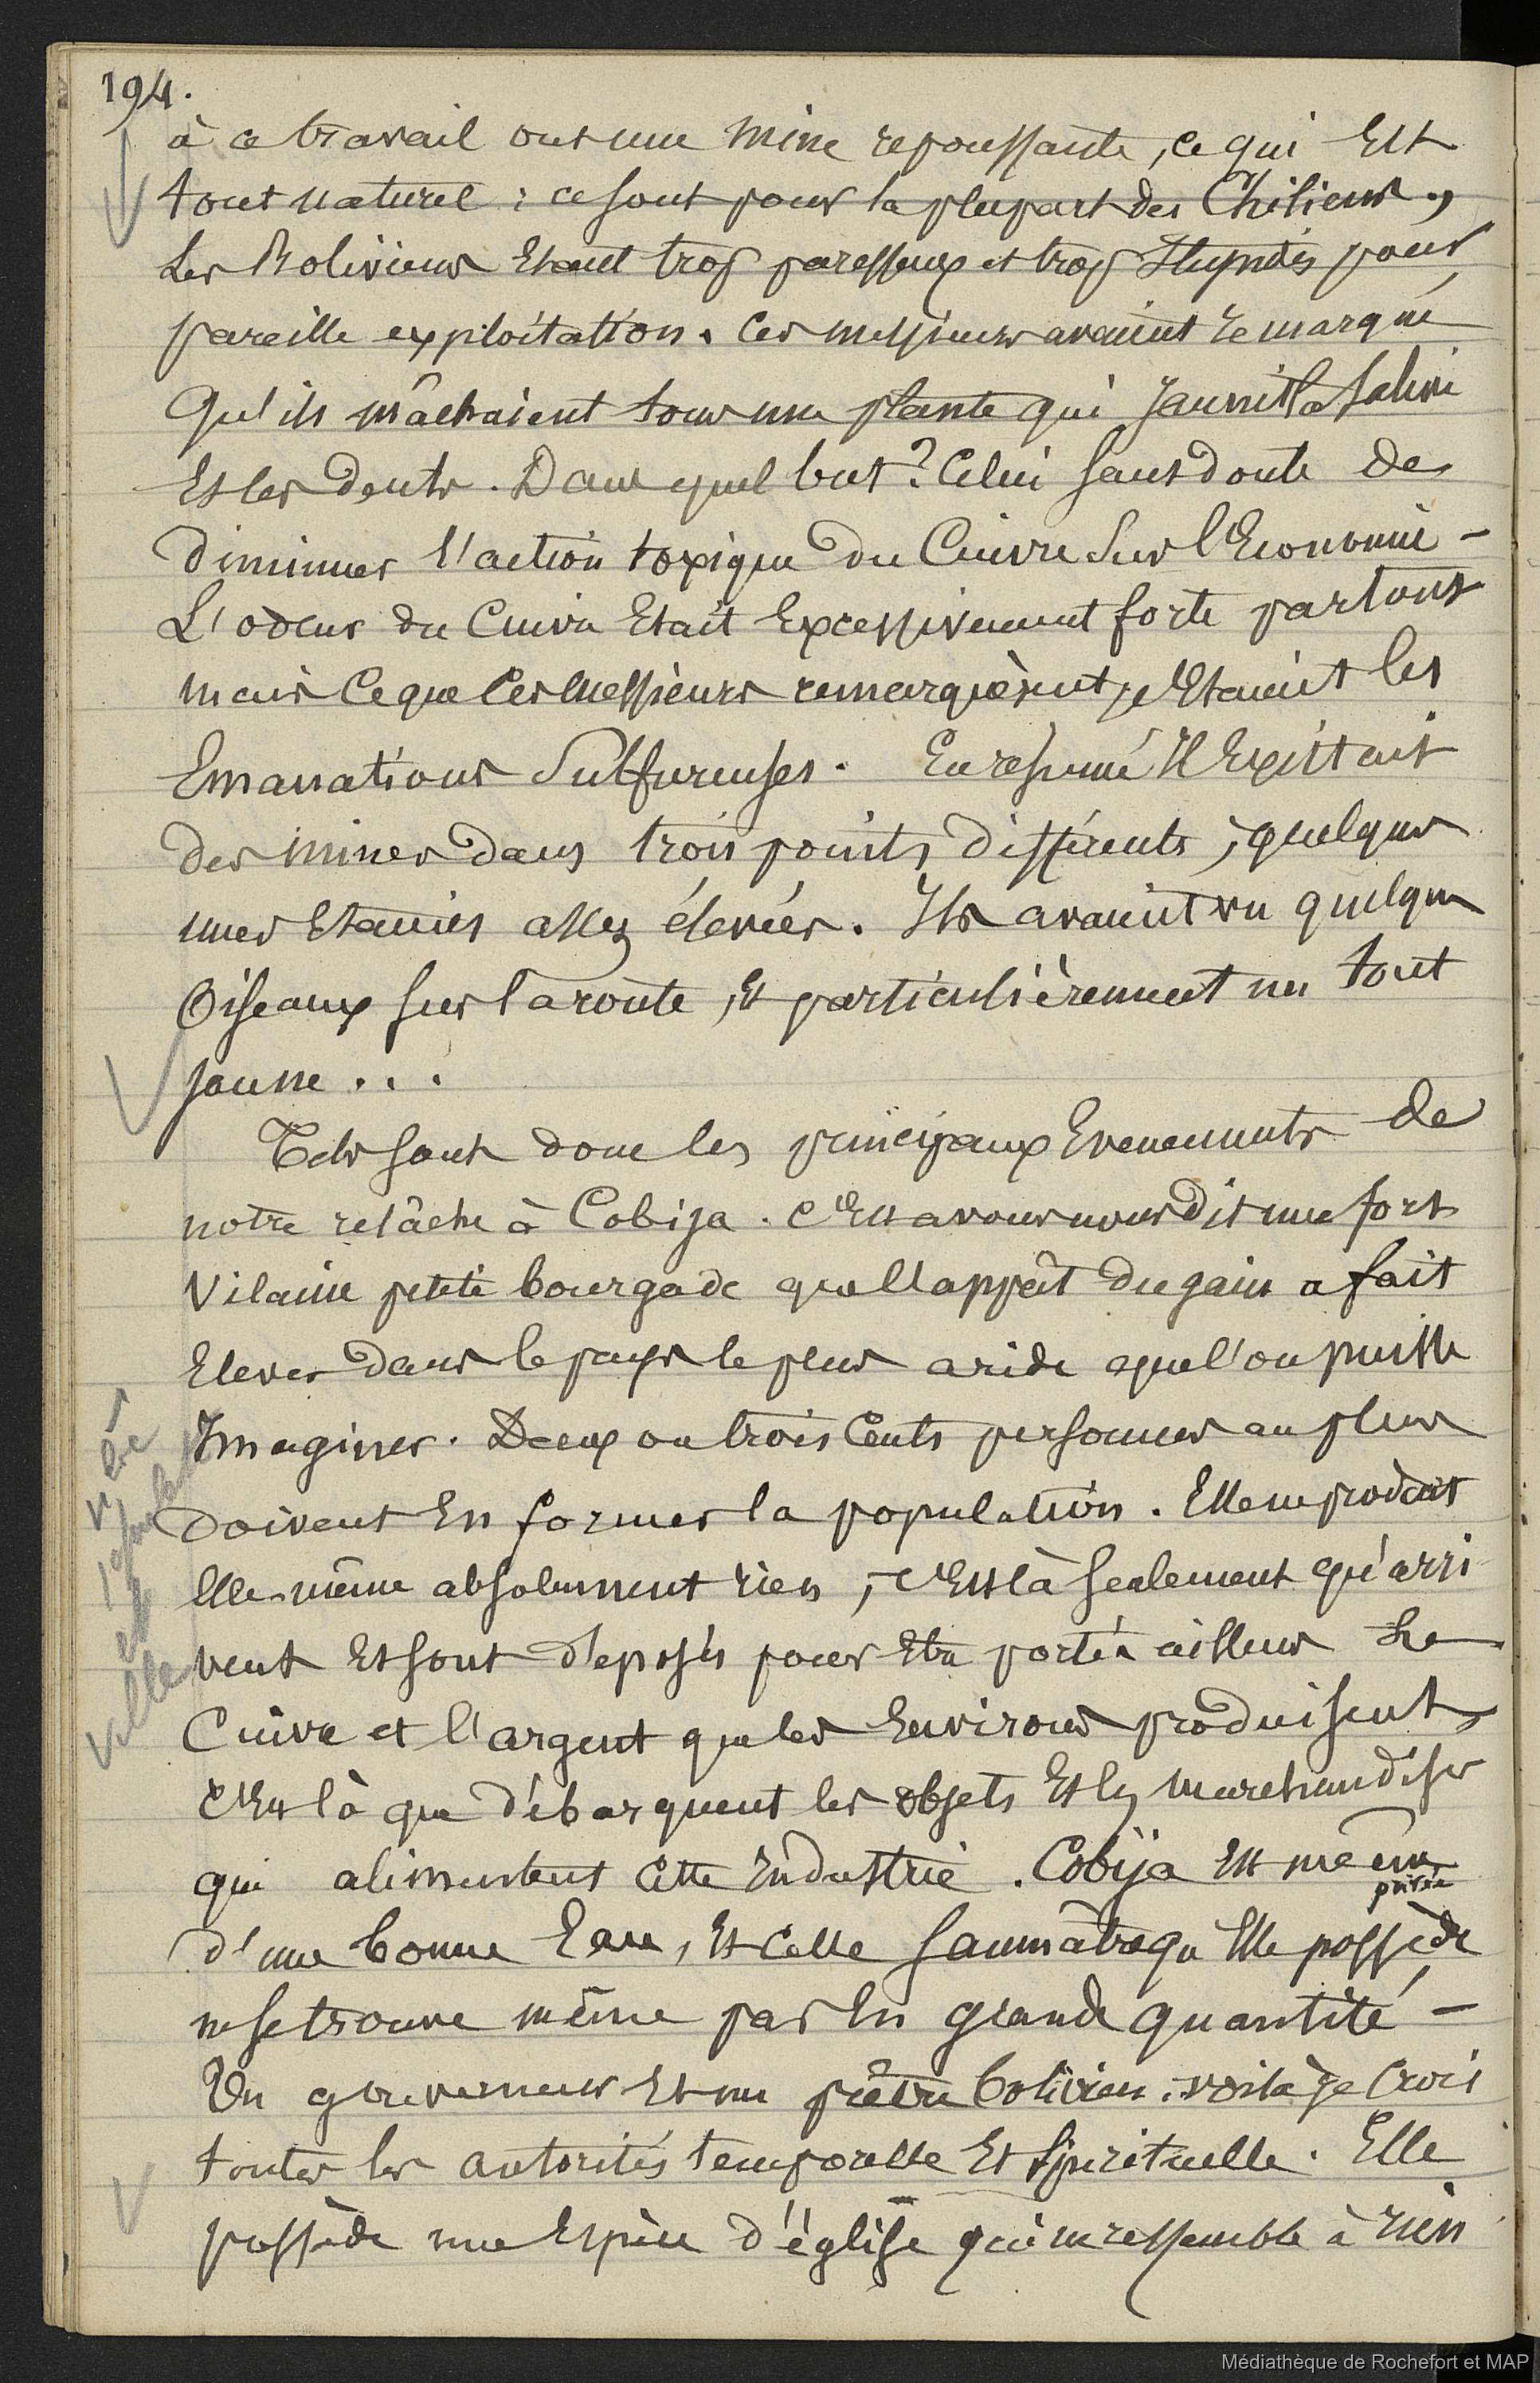 194.
à ce travail ont une mine repoussante, ce qui Est
tout naturel : ce sont pour la plupart des Chiliens,
Les Boliviens Etant trop paresseux et trop stupides pour
pareille exploitation. Ces messieurs avaient remarqué
Qu'ils mâchaient tous une plante qui jaunit la salive
Et les dents. Dans quel but ? Celui sans doute de
diminuer l'action toxique du Cuivre sur l'Economie -
L'odeur du Cuivre Etait Excessivement forte partout
mais Ce que Ces messieurs remarquèrent, c'Etaient les
Emanations Sulfureuses. En résumé Il Existait
des mines dans trois points différents, quelques
unes Etaient assez élevées. Ils avaient vu quelques
Oiseaux sur la route, Et particulièrement un tout
jaune...
Tels sont donc les principaux Evenements de
notre relâche à Cobija. C'Est avons nous dit une fort
Vilaine petite bourgade que l'appât du gain a fait
Elever dans le pays le plus aride que l'on puisse
Imaginer. Deux ou trois Cents personnes au plus
doivent En former la population. Elle ne produit
Elle-même absolument rien, c'Est là seulement qu'arri
vent Et sont déposés pour Etre portés ailleurs Le
Cuivre et l'argent que les Environs produisent,
C'Est là que débarquent les objets Et les marchandises
qui alimentent Cette Industrie. Cobija Est même
privée
d'une bonne Eau, Et Celle saumâtre qu'Elle possède
ne se trouve même pas En grande quantité -
Un gouverneur Et un prêtre bolivien : voilà je crois
toutes les autorités temporelle Et Spirituelle. Elle
possède une Espèce d'église qui ne ressemble à rien
ville
Médiathèque de Rochefort et MAP